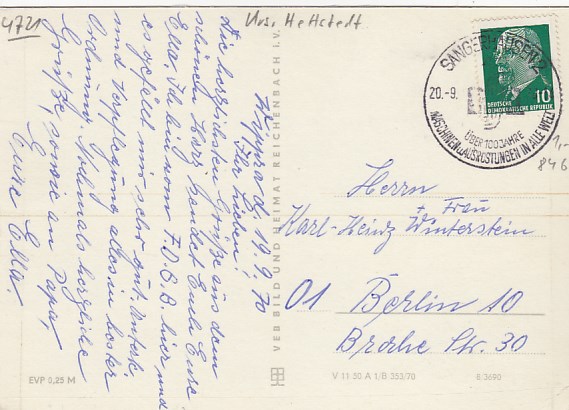 4721
Krs. Hettstedt
Wippra d. 19.9.70
Ihr Lieben!
Die herzlichsten Grüße aus dem
schönen Harz sendet Euch Eure
Ella. Ich bin vom F.D.G.B. hier und
es gefällt mir sehr gut. Unterk.
und Verpflegung alles in bester
Ordnung. Nochmals herzliche
Grüße, sowie an Papa,
Eure Ella.
EVP 0,25 M
VEB BILD UND HEIMAT REICHENBACH I. V.
V 11 50 A 1/B 353/70
8/3690
SANGERHAUSEN
20.-9.
ÜBER 100 JAHRE
MASCHINEN u. AUSRÜSTUNGEN IN ALLE WELT
DEUTSCHE
DEMOKRATISCHE REPUBLIK
10
1,-
846
Herrn
+ Frau
Karl-Heinz Winterstein
01 Berlin 10
Brahe Str. 30